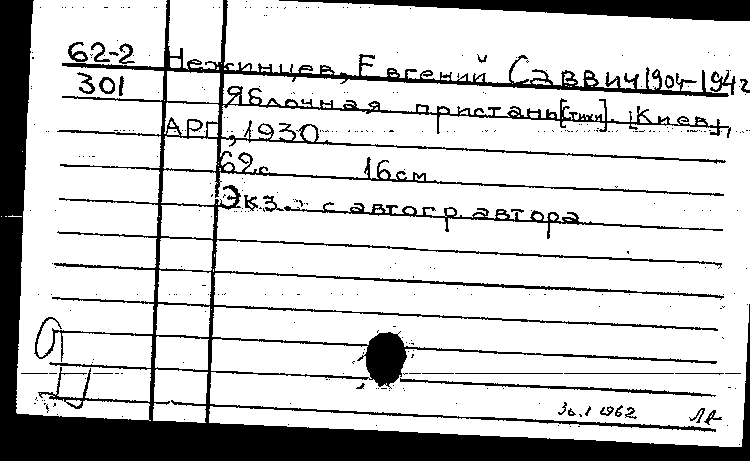 62-2 Нежинцев, Евгений Саввич 1904-1942
301 Яблочная пристань [стихи]. [Киев],
АРП, 1930.
62с. 16см.
Экз. с автогр автора
30.1 1962